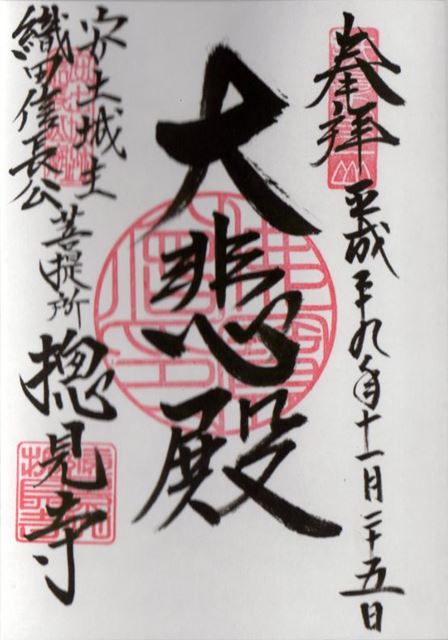 奉拝
平成十九年十一月二十五日
大悲殿
安土城主
織田信長公
菩提所
摠見寺